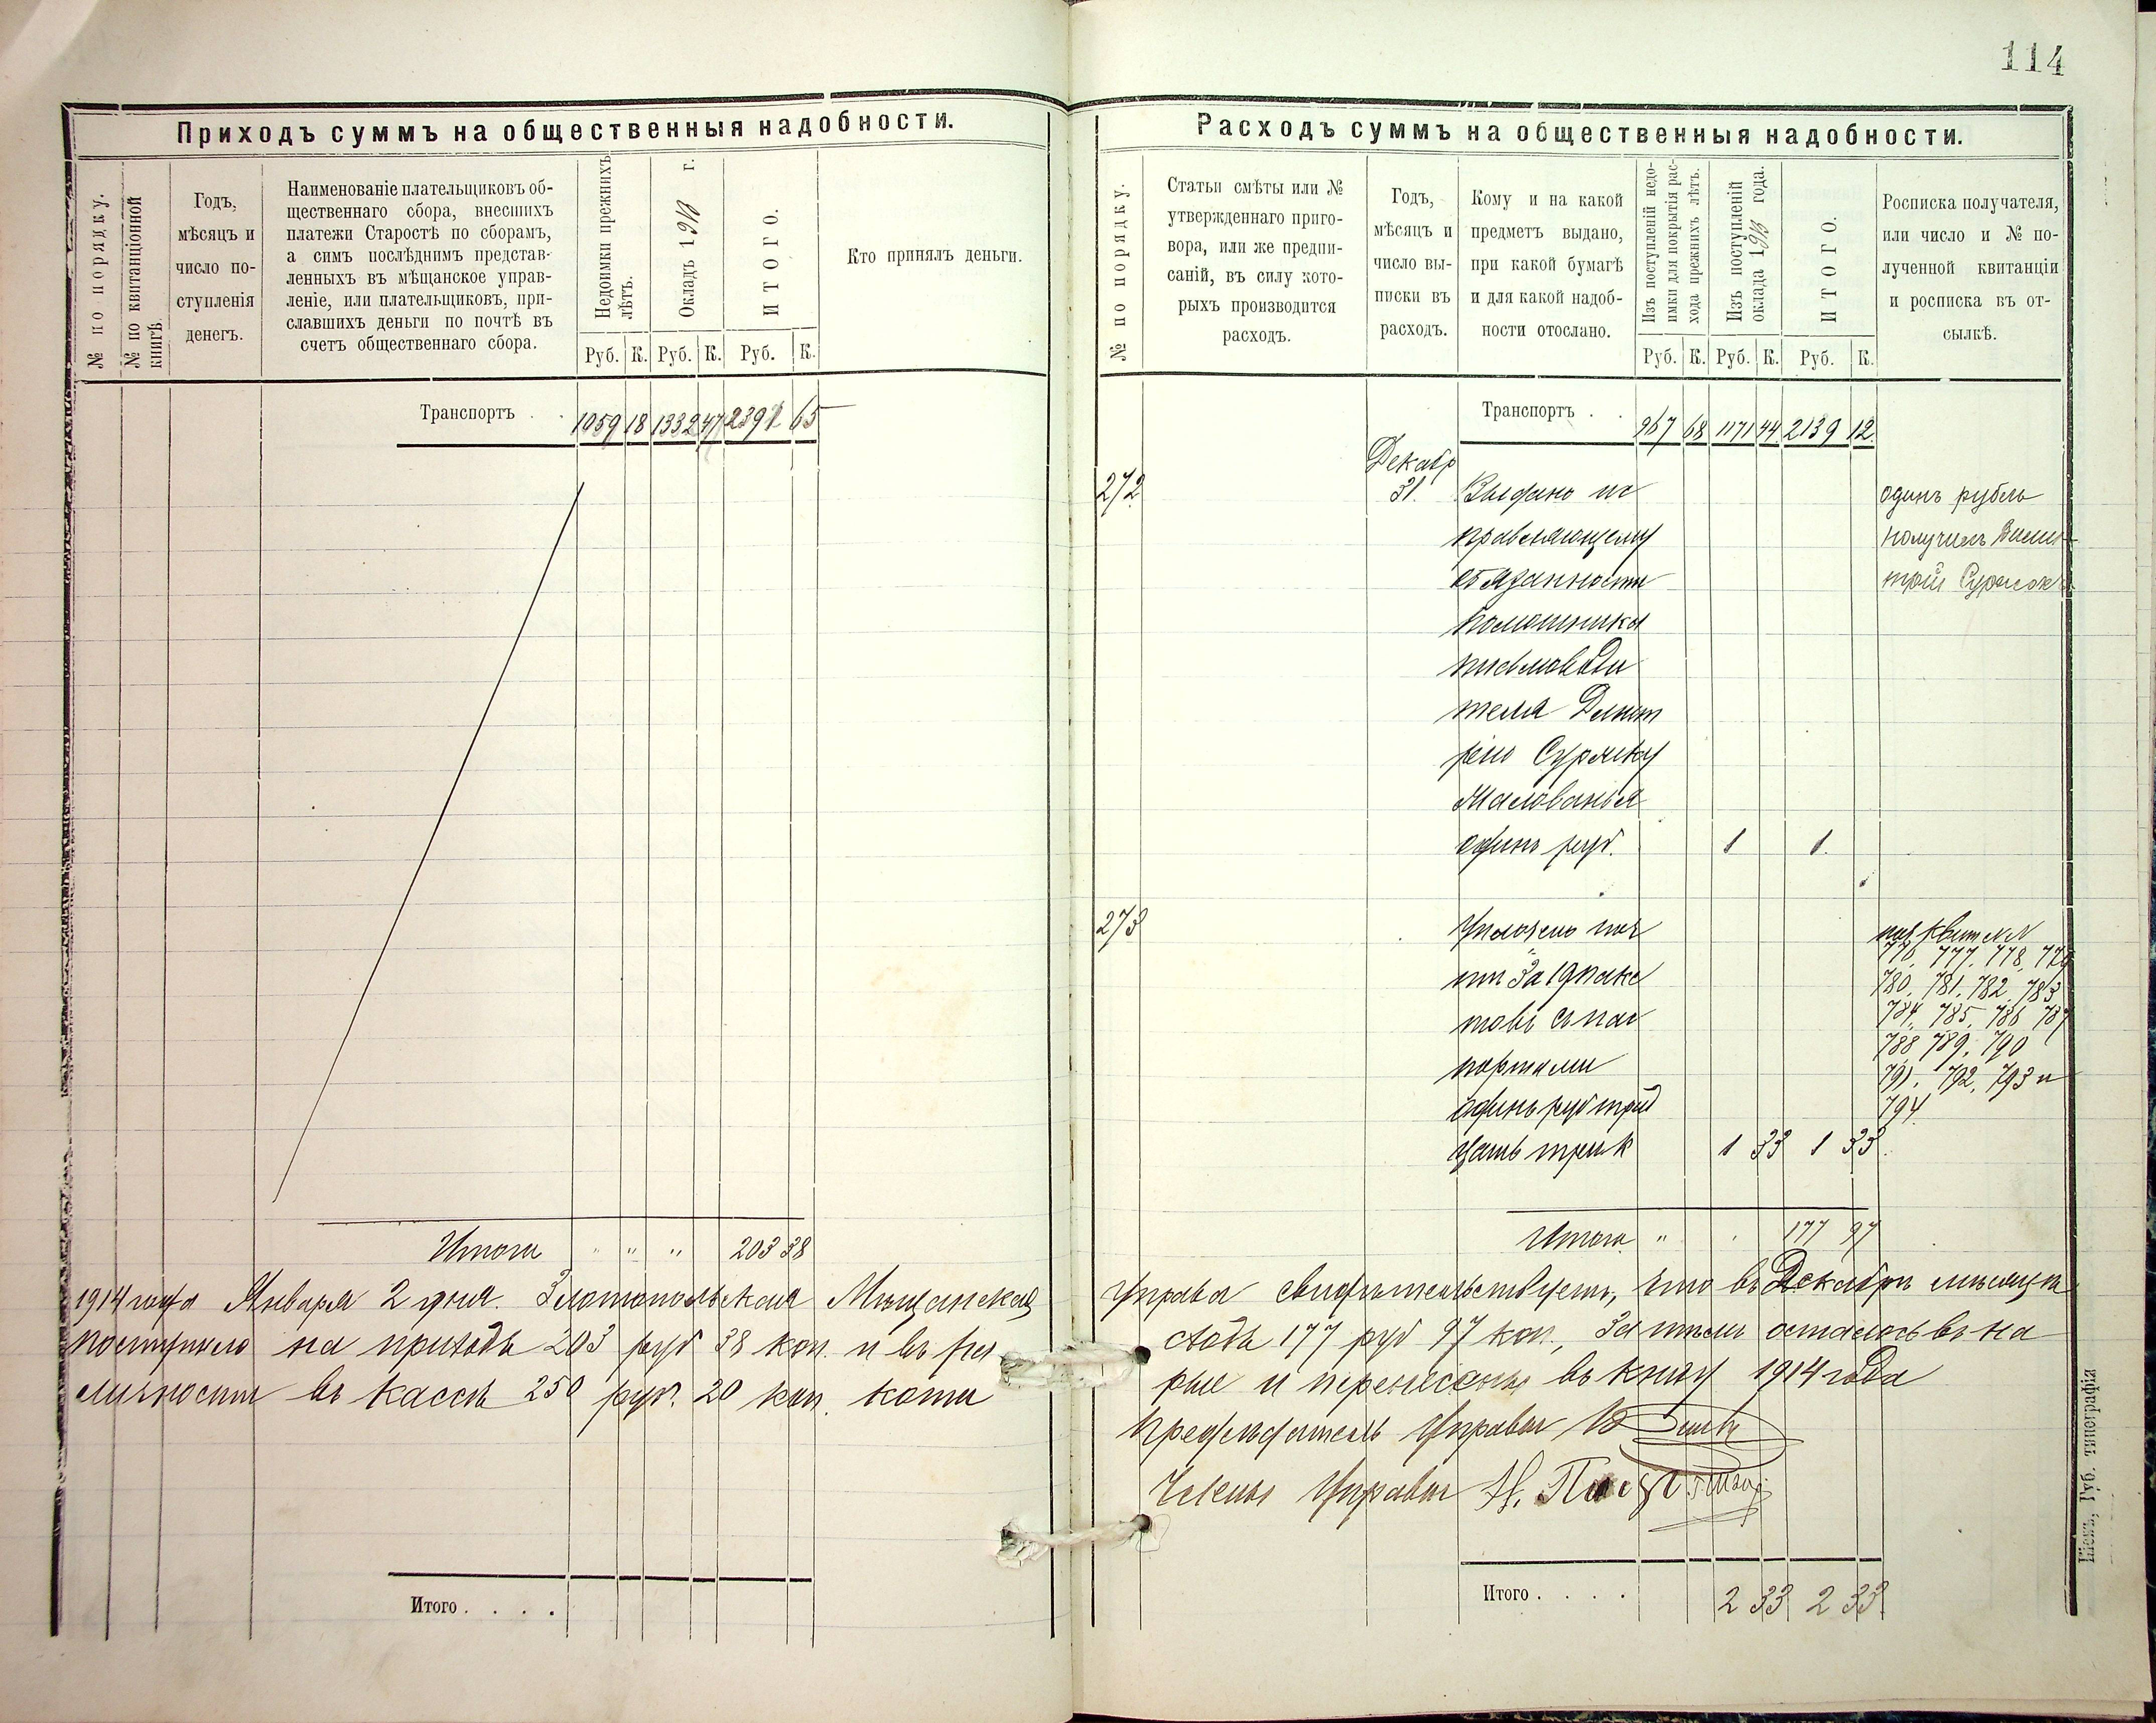 114
Приходъ суммъ на общественныя надобности.
№ по порядку.
№ по квитанціонной
книгѣ.
Годъ,
мѣсяцъ и
число по-
ступленія
денегъ.
Наименованіе плательщиковъ об-
щественнаго сбора, внесшихъ
платежи Старостѣ по сборамъ,
а симъ послѣднимъ представ-
ленныхъ въ мѣщанское управ-
леніе, или плательщиковъ, при-
славшихъ деньги по почтѣ въ
счетъ общественнаго сбора.
Недоимки прежнихъ
лѣтъ.
Окладъ 1913 г.
ИТОГО.
Руб. К. Руб. К. Руб. К.
Кто принялъ деньги.
Транспортъ . . 1059 18 1332 47 2391 65
Итого " " " 203 38
1914 года Января 2 дня. Златопольская Мѣщанская
поступило на приходъ 203 руб 38 коп. и въ рас
личности въ кассѣ 250 руб. 20 коп. кото
Итого . . . .
Расходъ суммъ на общественныя надобности.
№ по порядку.
Статьи смѣты или №
утвержденнаго приго-
вора, или же предпи-
саній, въ силу кото-
рыхъ производится
расходъ.
Годъ,
мѣсяцъ и
число вы-
писки въ
расходъ.
Кому и на какой
предметъ выдано,
при какой бумагѣ
и для какой надоб-
ности отослано.
Изъ поступленій недо-
имки для покрытія рас-
хода прежнихъ лѣтъ.
Изъ поступленій
оклада 1913 года.
ИТОГО.
Руб. К. Руб. К. Руб. К.
Росписка получателя,
или число и № по-
лученной квитанціи
и росписка въ от-
сылкѣ.
Транспортъ . . 967 68 1171 44 2139 12
Декабр
272 31. Выдано ис
правляющему
обязанности
помошника
письмоводи
теля Дмит
рію Сурмку
жалованья
одинъ руб. 1 1.
одинъ рубль
получилъ
273 Уплочено поч
ти за 19 паке
товъ съ пас
портами
одинъ руб трид
цать три к 1 33 1 33.
под квит №№
776, 777, 778, 779
780, 781, 782, 783
784, 785, 786, 787
788, 789, 790
791, 792, 793 и
794.
Итого " 177 97
Управа свидѣтельствуетъ, что въ Декабрѣ мѣсяцѣ
сходъ 177 руб 97 коп., затѣмъ осталось въ на
рые и перенесены въ книгу 1914 года
Предсѣдатель Управы
Члены Управы
Итого . . . . 2 33 2 33.
Кіевъ, Губ. типографія